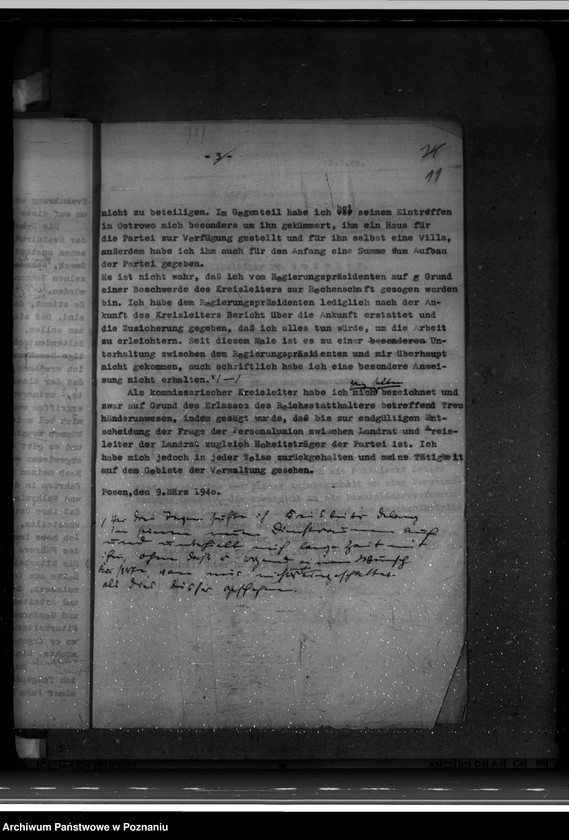 - 3 -
11
nicht zu beteiligen. Im Gegenteil habe ich bei seinem Eintreffen
in Ostrowo mich besonders um ihn gekümmert, ihm ein Haus für
die Partei zur Verfügung gestellt und für ihn selbst eine Villa,
außerdem habe ich ihm auch für den Anfang eine Summe zum Aufbau
der Partei gegeben.
Es ist nicht wahr, daß ich vom Regierungspräsidenten auf g Grund
einer Beschwerde des Kreisleiters zur Rechenschaft gezogen worden
bin. Ich habe dem Regierungspräsidenten lediglich nach der An-
kunft des Kreisleiters Bericht über die Ankunft erstattet und
die Zusicherung gegeben, daß ich alles tun würde, um die Arbeit
zu erleichtern. Seit diesem Male ist es zu einer besonderen Un-
terhaltung zwischen dem Regierungspräsidenten und mir überhaupt
nicht gekommen, auch schriftlich habe ich eine besondere Anwei-
sung nicht erhalten.
Als kommissarischer Kreisleiter habe ich mich bezeichnet und
zwar auf Grund des Erlasses des Reichsstatthalters betreffend Treu
händerwesen, indem gesagt wurde, daß bis zur endgültigen Ent-
scheidung der Frage der Personalunion zwischen Landrat und Kreis-
leiter der Landrat zugleich Hoheitsträger der Partei ist. Ich
habe mich jedoch in jeder Weise zurückgehalten und meine Tätigkeit
auf dem Gebiete der Verwaltung gesehen.
Posen, den 9. März 1940.
Vor drei Tagen suchte ich Kreisleiter
in seinen neuen Diensträumen auf
und unterhielt mich lange Zeit mit
ihm, ohne daß
als dies bisher geschehen.
Archiwum Państwowe w Poznaniu